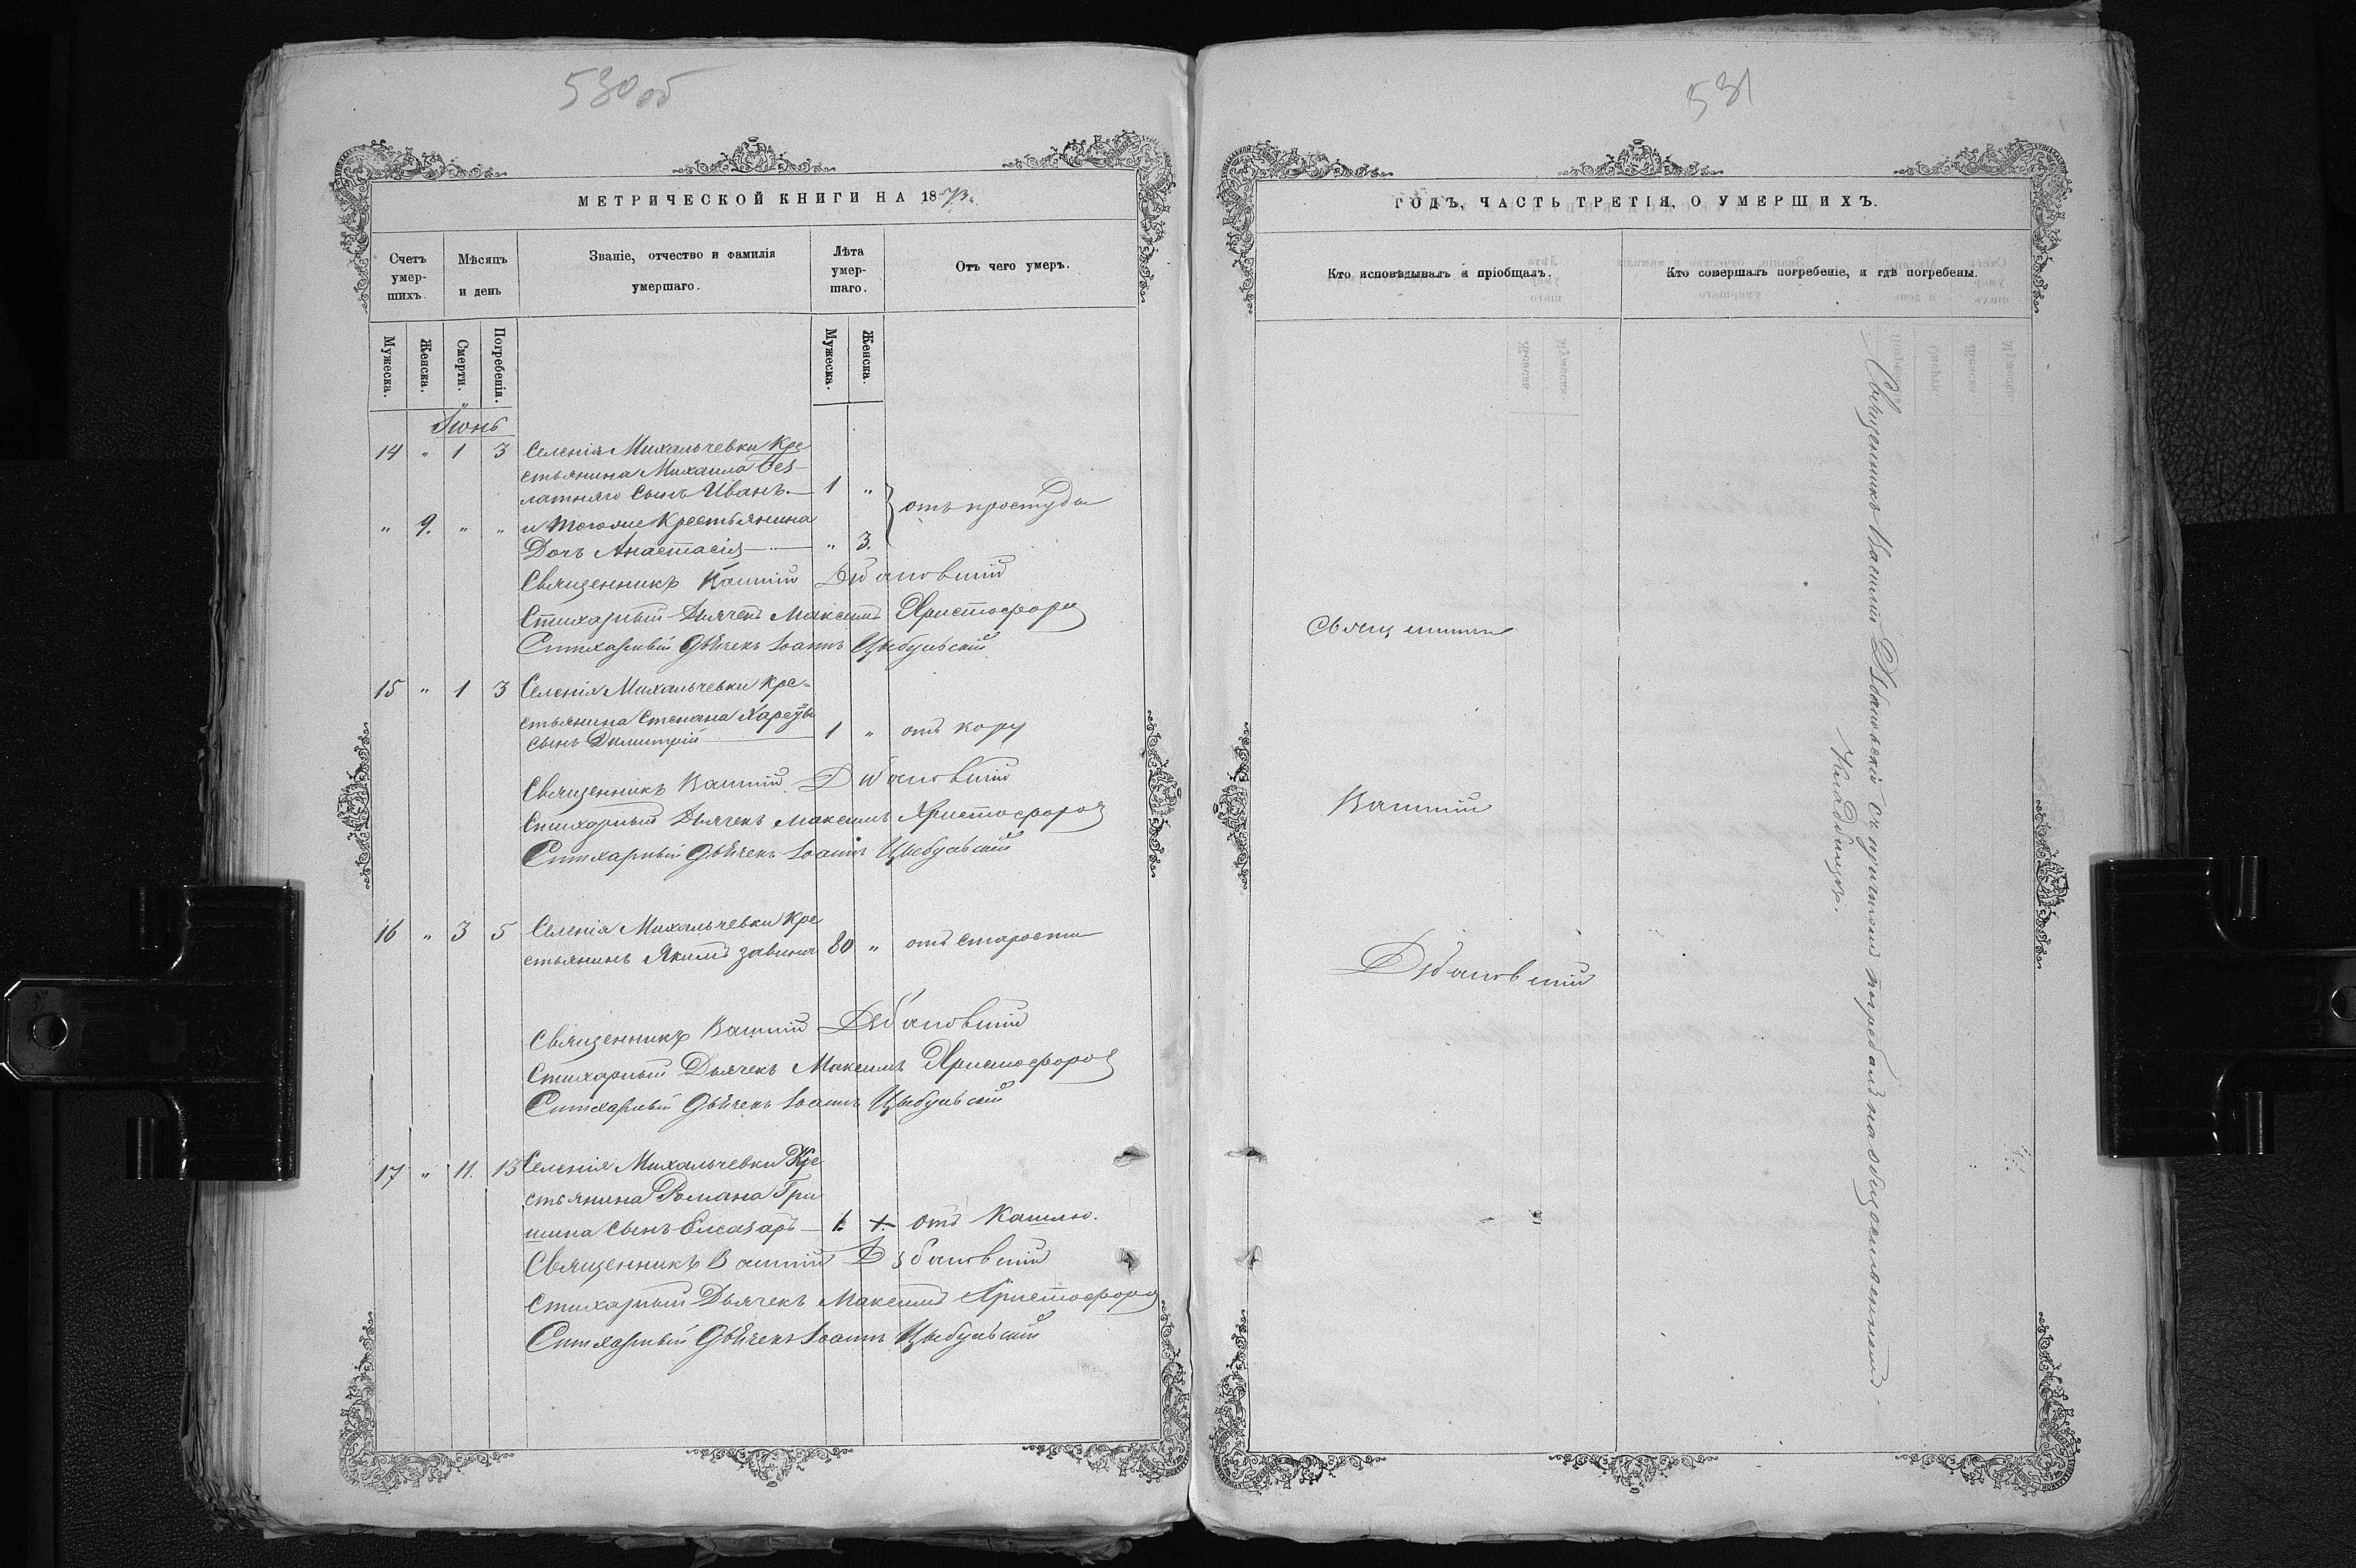 530 об
МЕТРИЧЕСКОЙ КНИГИ НА 1873.
Счетъ умер-шихъ.
Мѣсяцъ и день
Званіе, отчество и фамилія умершаго.
Лѣта умер-шаго.
Отъ чего умеръ.
Мужеска. Женска. Смерти. Погребенія. Мужеска. Женска.
Іюнь
14 " 1 3 Селенія Михальчевки Кре
стьянина Михаила Без-
латняго сынъ Иванъ.— 1 "
отъ простуды
" 9. " " и тогоже Крестьянина
Дочь Анастасія — " 3.
Священникъ Василій Дзбановскій
Стихарный Дьячекъ Максимъ Христофоров
Стихарный Дьячекъ Іоаннъ Цыбульскій
15 " 1 3 Селенія Михальчевки Кре-
стьянина Степана
сынъ Димитрій — 1 " отъ кору
Священникъ Василій Дзбановскій
Стихарный Дьячекъ Максимъ Христофоров
Стихарный Дьячекъ Іоаннъ Цыбульскій
16 " 3 5 Селенія Михальчевки Кре
стьянинъ Якимъ 80 " отъ старости
Священникъ Василій Дзбановскій
Стихарный Дьячекъ Максимъ Христофоров
Стихарный Дьячекъ Іоаннъ Цыбульскій
17 " 11. 13 Селенія Михальчевки Кре
стьянина Романа Гри
шина сынъ Елеазаръ — 1. отъ Кашлю.
Священникъ Василій Дзбановскій
Стихарный Дьячекъ Максимъ Христофоров
Стихарный Дьячекъ Іоаннъ Цыбульскій
531
ГОДЪ, ЧАСТЬ ТРЕТІЯ, О УМЕРШИХЪ.
Кто исповѣдывалъ и пріобщалъ.
Кто совершалъ погребеніе, и гдѣ погребены.
Священникъ
Василій
Дзбановскій
Священникъ Василій Дзбановскій съ причтомъ погребалъ на общественномъ
Кладбищѣ.